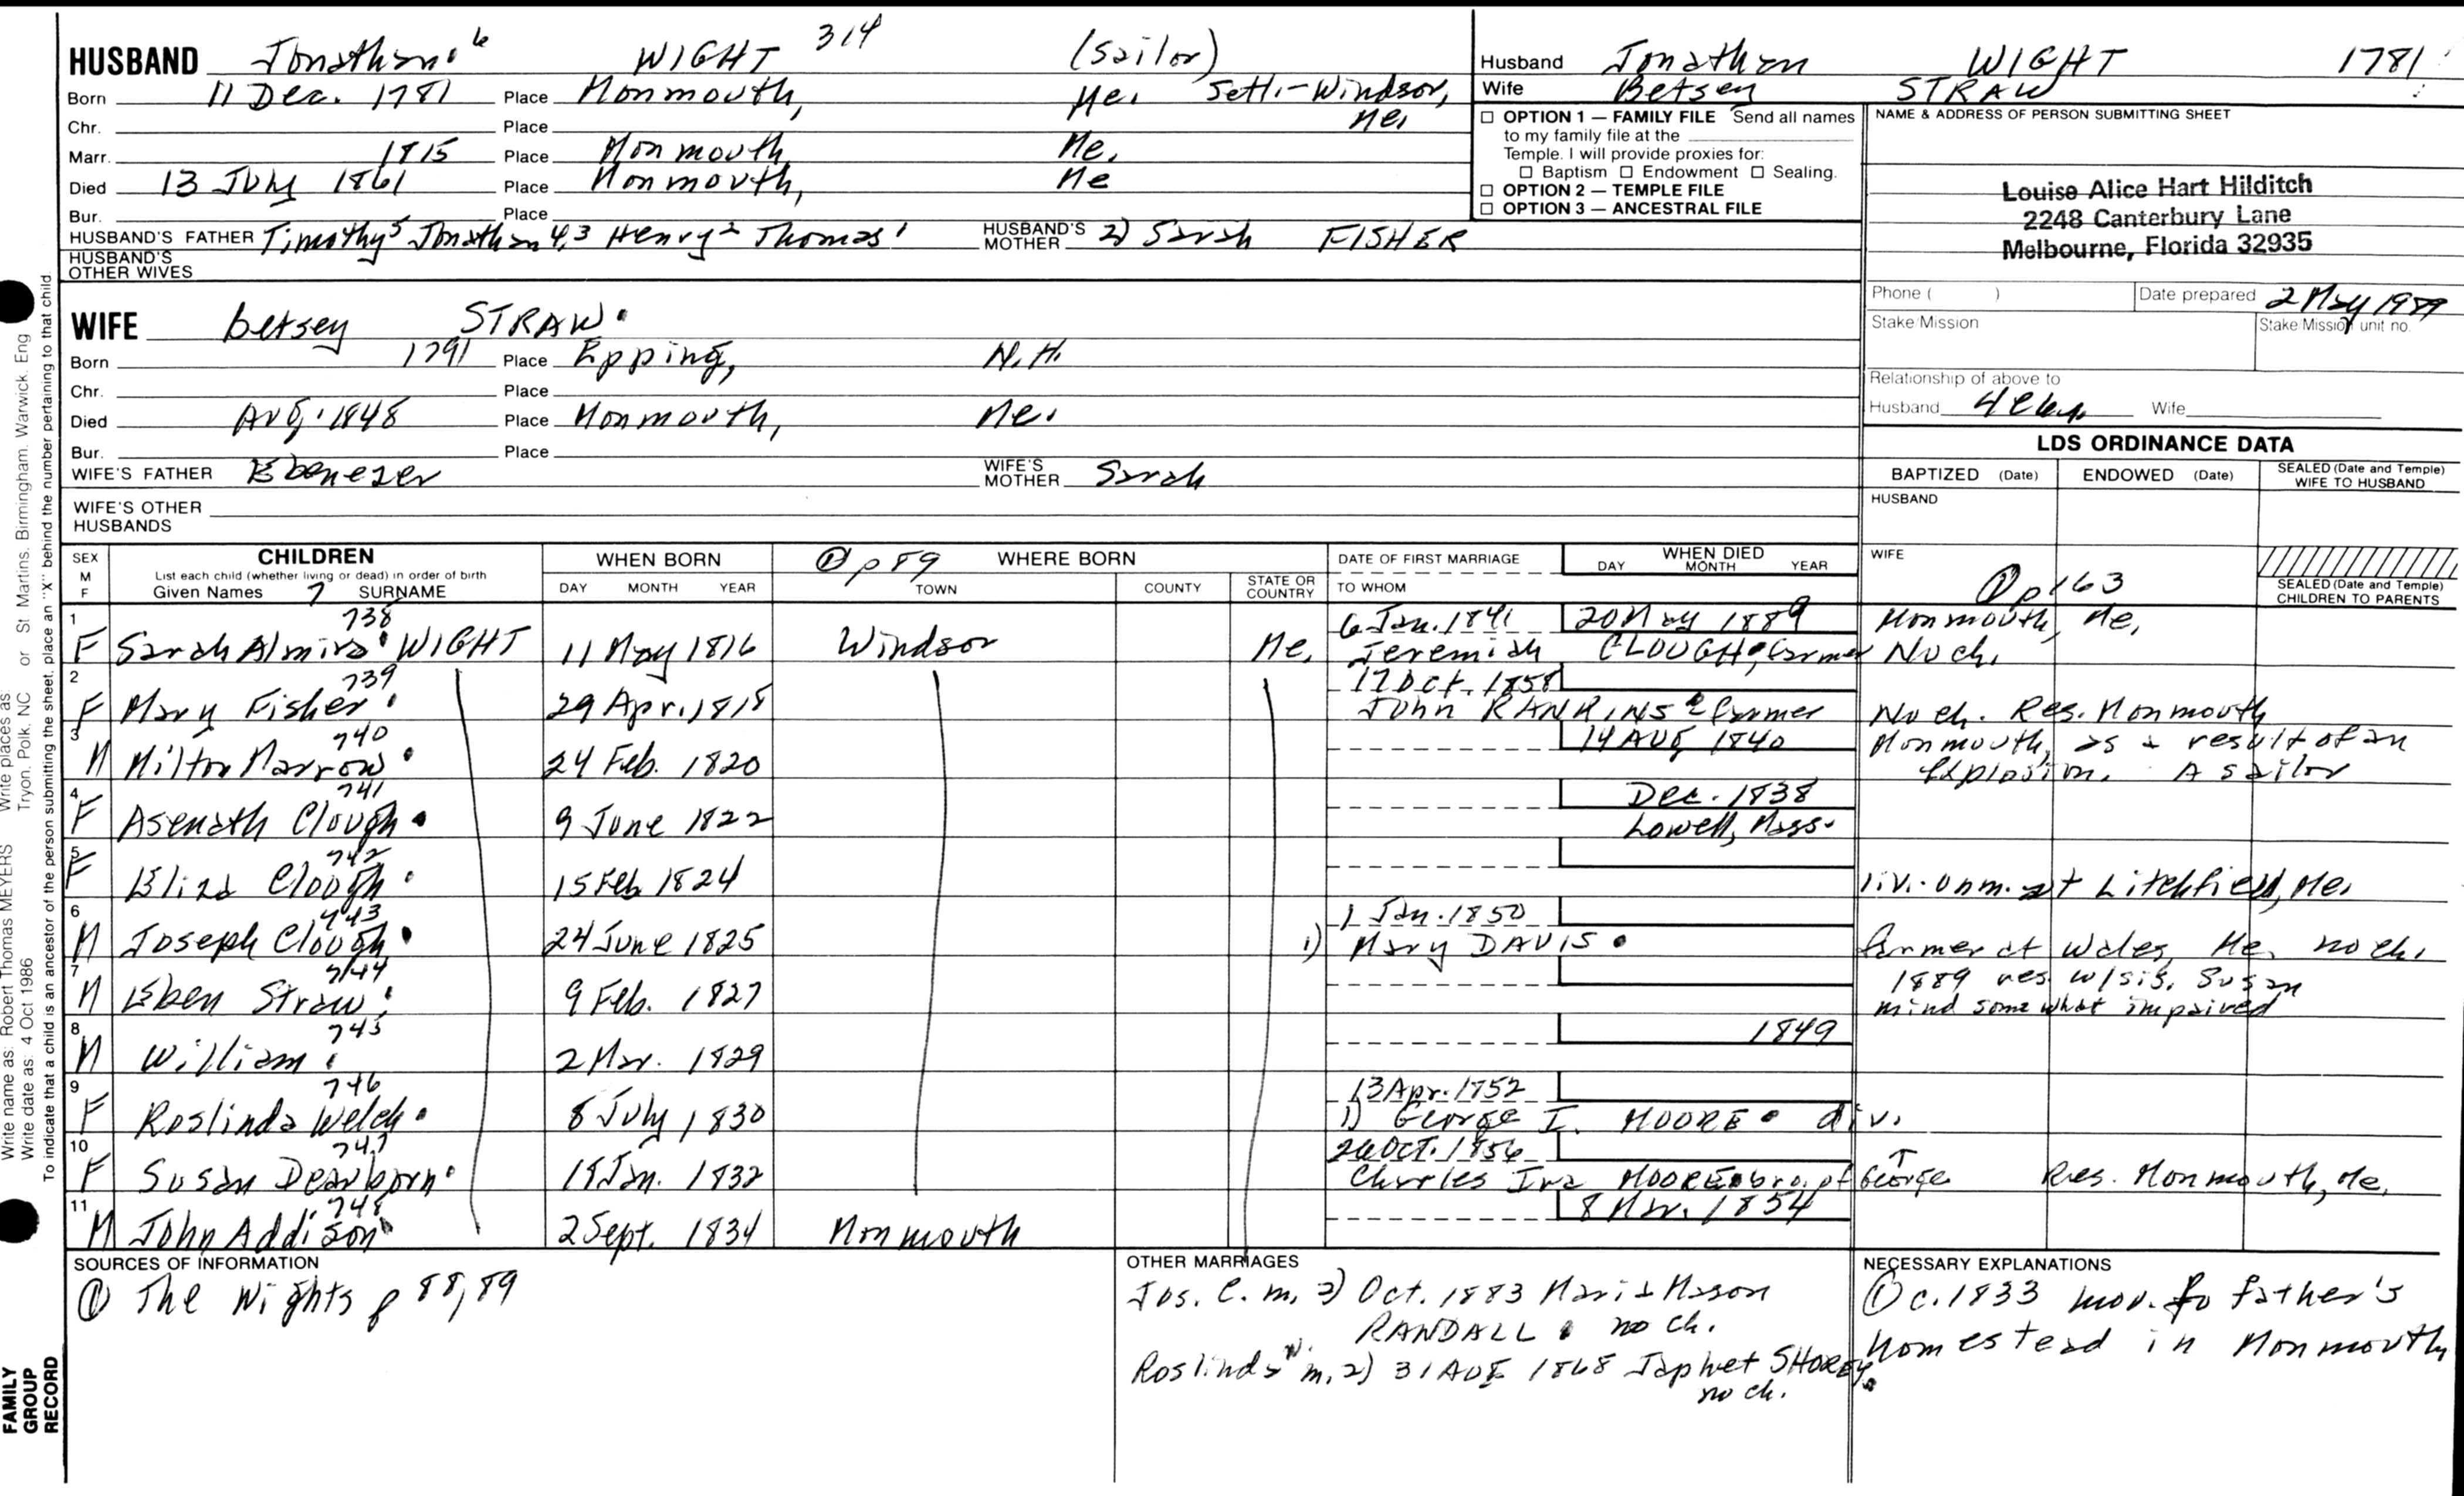 HUSBAND Jonathan 6 WIGHT 314 (sailor)
Born 11 Dec. 1781 Place Monmouth, Me. Settl.-Windsor, Me.
Chr. Place
Marr. 1815 Place Monmouth, Me.
Died 13 July 1861 Place Monmouth, Me
Bur. Place
HUSBAND'S FATHER Timothy5 Jonathan4,3 Henry2 Thomas1 HUSBAND'S MOTHER 2) Sarah FISHER
HUSBAND'S OTHER WIVES
Husband Jonathan WIGHT 1781
Wife Betsey STRAW
☐ OPTION 1 — FAMILY FILE Send all names
to my family file at the
Temple. I will provide proxies for:
☐ Baptism ☐ Endowment ☐ Sealing.
☐ OPTION 2 — TEMPLE FILE
☐ OPTION 3 — ANCESTRAL FILE
NAME & ADDRESS OF PERSON SUBMITTING SHEET
Louise Alice Hart Hilditch
2248 Canterbury Lane
Melbourne, Florida 32935
Phone ( ) Date prepared 2 May 1989
Stake/Mission Stake Mission unit no.
Relationship of above to
Husband Wife
WIFE betsey STRAW.
Born 1791 Place Epping, N.H.
Chr. Place
Died Aug. 1848 Place Monmouth, Me.
Bur. Place
WIFE'S FATHER Ebenezer WIFE'S MOTHER Sarah
WIFE'S OTHER HUSBANDS
LDS ORDINANCE DATA
BAPTIZED (Date) ENDOWED (Date) SEALED (Date and Temple) WIFE TO HUSBAND
HUSBAND
SEX M F CHILDREN
List each child (whether living or dead) in order of birth
Given Names 7 SURNAME
WHEN BORN DAY MONTH YEAR
① p 89 WHERE BORN TOWN COUNTY STATE OR COUNTRY
DATE OF FIRST MARRIAGE TO WHOM
WHEN DIED DAY MONTH YEAR
WIFE ① p163
SEALED (Date and Temple) CHILDREN TO PARENTS
1 738 6 Jan. 1841 20 May 1889 Monmouth, Me.
F Sarah Almira WIGHT 11 May 1816 Windsor Me. Jeremiah CLOUGH, farmer No ch.
2 739 17 Oct. 1858
F Mary Fisher 29 Apr. 1818 John RANKINS farmer No ch. Res. Monmouth
3 740 14 Aug 1840 Monmouth, as a result of an
M Milton Marrow 24 Feb. 1820 explosion. A sailor
4 741 Dec. 1838
F Asenath Clough 9 June 1822 Lowell, Mass.
5 742
F Eliza Clough 15 Feb 1824 liv. unm. at Litchfield, Me.
6 743 1 Jan. 1850
M Joseph Clough 24 June 1825 1) Mary DAVIS farmer at Wales, Me. no ch.
7 744 1889 res. w/sis. Susan
M Eben Straw 9 Feb. 1827 mind somewhat impaired
8 745 1849
M William 2 Mar. 1829
9 746 13 Apr. 1852
F Roslinda Welch 8 July 1830 1) George I. MOORE div.
10 747 26 Oct. 1856
F Susan Dearborn 18 Jan. 1832 Charles Ira MOORE bro. of George Res. Monmouth, Me.
11 748 8 Mar. 1854
M John Addison 2 Sept. 1834 Monmouth
SOURCES OF INFORMATION
① The Wights p 88, 89
OTHER MARRIAGES
Jos. C. m. 2) Oct. 1883 Maria Mason
RANDALL no ch.
Roslinda W. m. 2) 31 Aug 1868 Japhet SHOREY
no ch.
NECESSARY EXPLANATIONS
① c. 1833 mov. to father's
homestead in Monmouth
Write name as: Robert Thomas MEYERS Write places as Tryon, Polk, NC or St Martins, Birmingham, Warwick, Eng
Write date as: 4 Oct 1986
To indicate that a child is an ancestor of the person submitting the sheet, place an "X" behind the number pertaining to that child
FAMILY
GROUP
RECORD